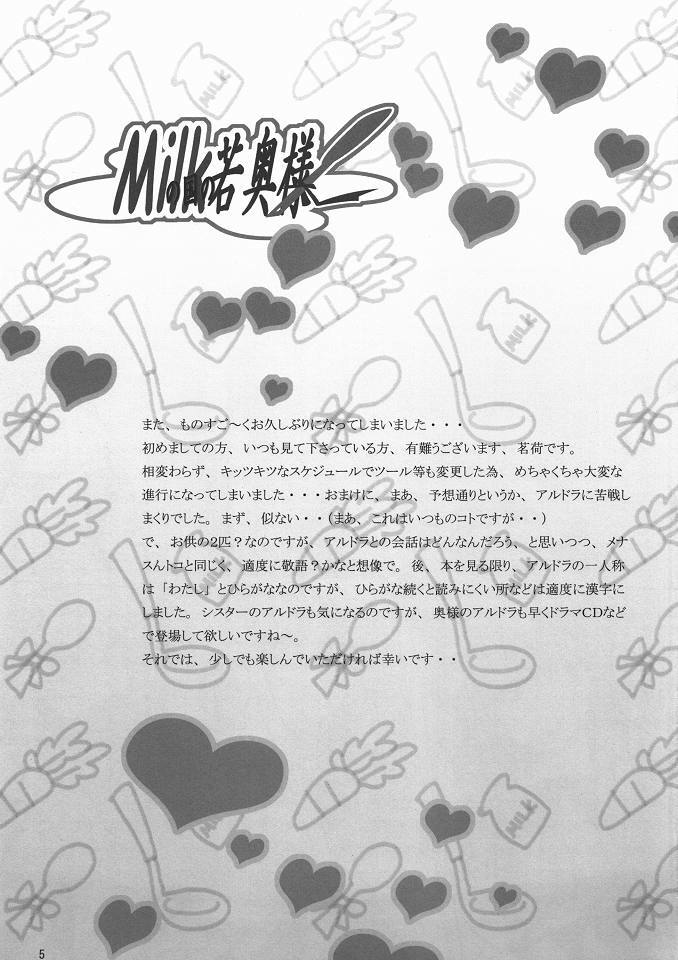 Milkの国の若奥様
MILK
また、ものすご～くお久しぶりになってしまいました・・・
初めましての方、いつも見て下さっている方、有難うございます、茗荷です。
相変わらず、キッツキツなスケジュールでツール等も変更した為、めちゃくちゃ大変な
進行になってしまいました・・・おまけに、まあ、予想通りというか、アルドラに苦戦し
まくりでした。まず、似ない・・（まあ、これはいつものコトですが・・）
で、お供の2匹？なのですが、アルドラとの会話はどんなんだろう、と思いつつ、メナ
スんトコと同じく、適度に敬語？かなと想像で。後、本を見る限り、アルドラの一人称
は「わたし」とひらがななのですが、ひらがな続くと読みにくい所などは適度に漢字に
しました。シスターのアルドラも気になるのですが、奥様のアルドラも早くドラマCDなど
で登場して欲しいですね～。
それでは、少しでも楽しんでいただければ幸いです・・
MILK
MILK
MILK
5